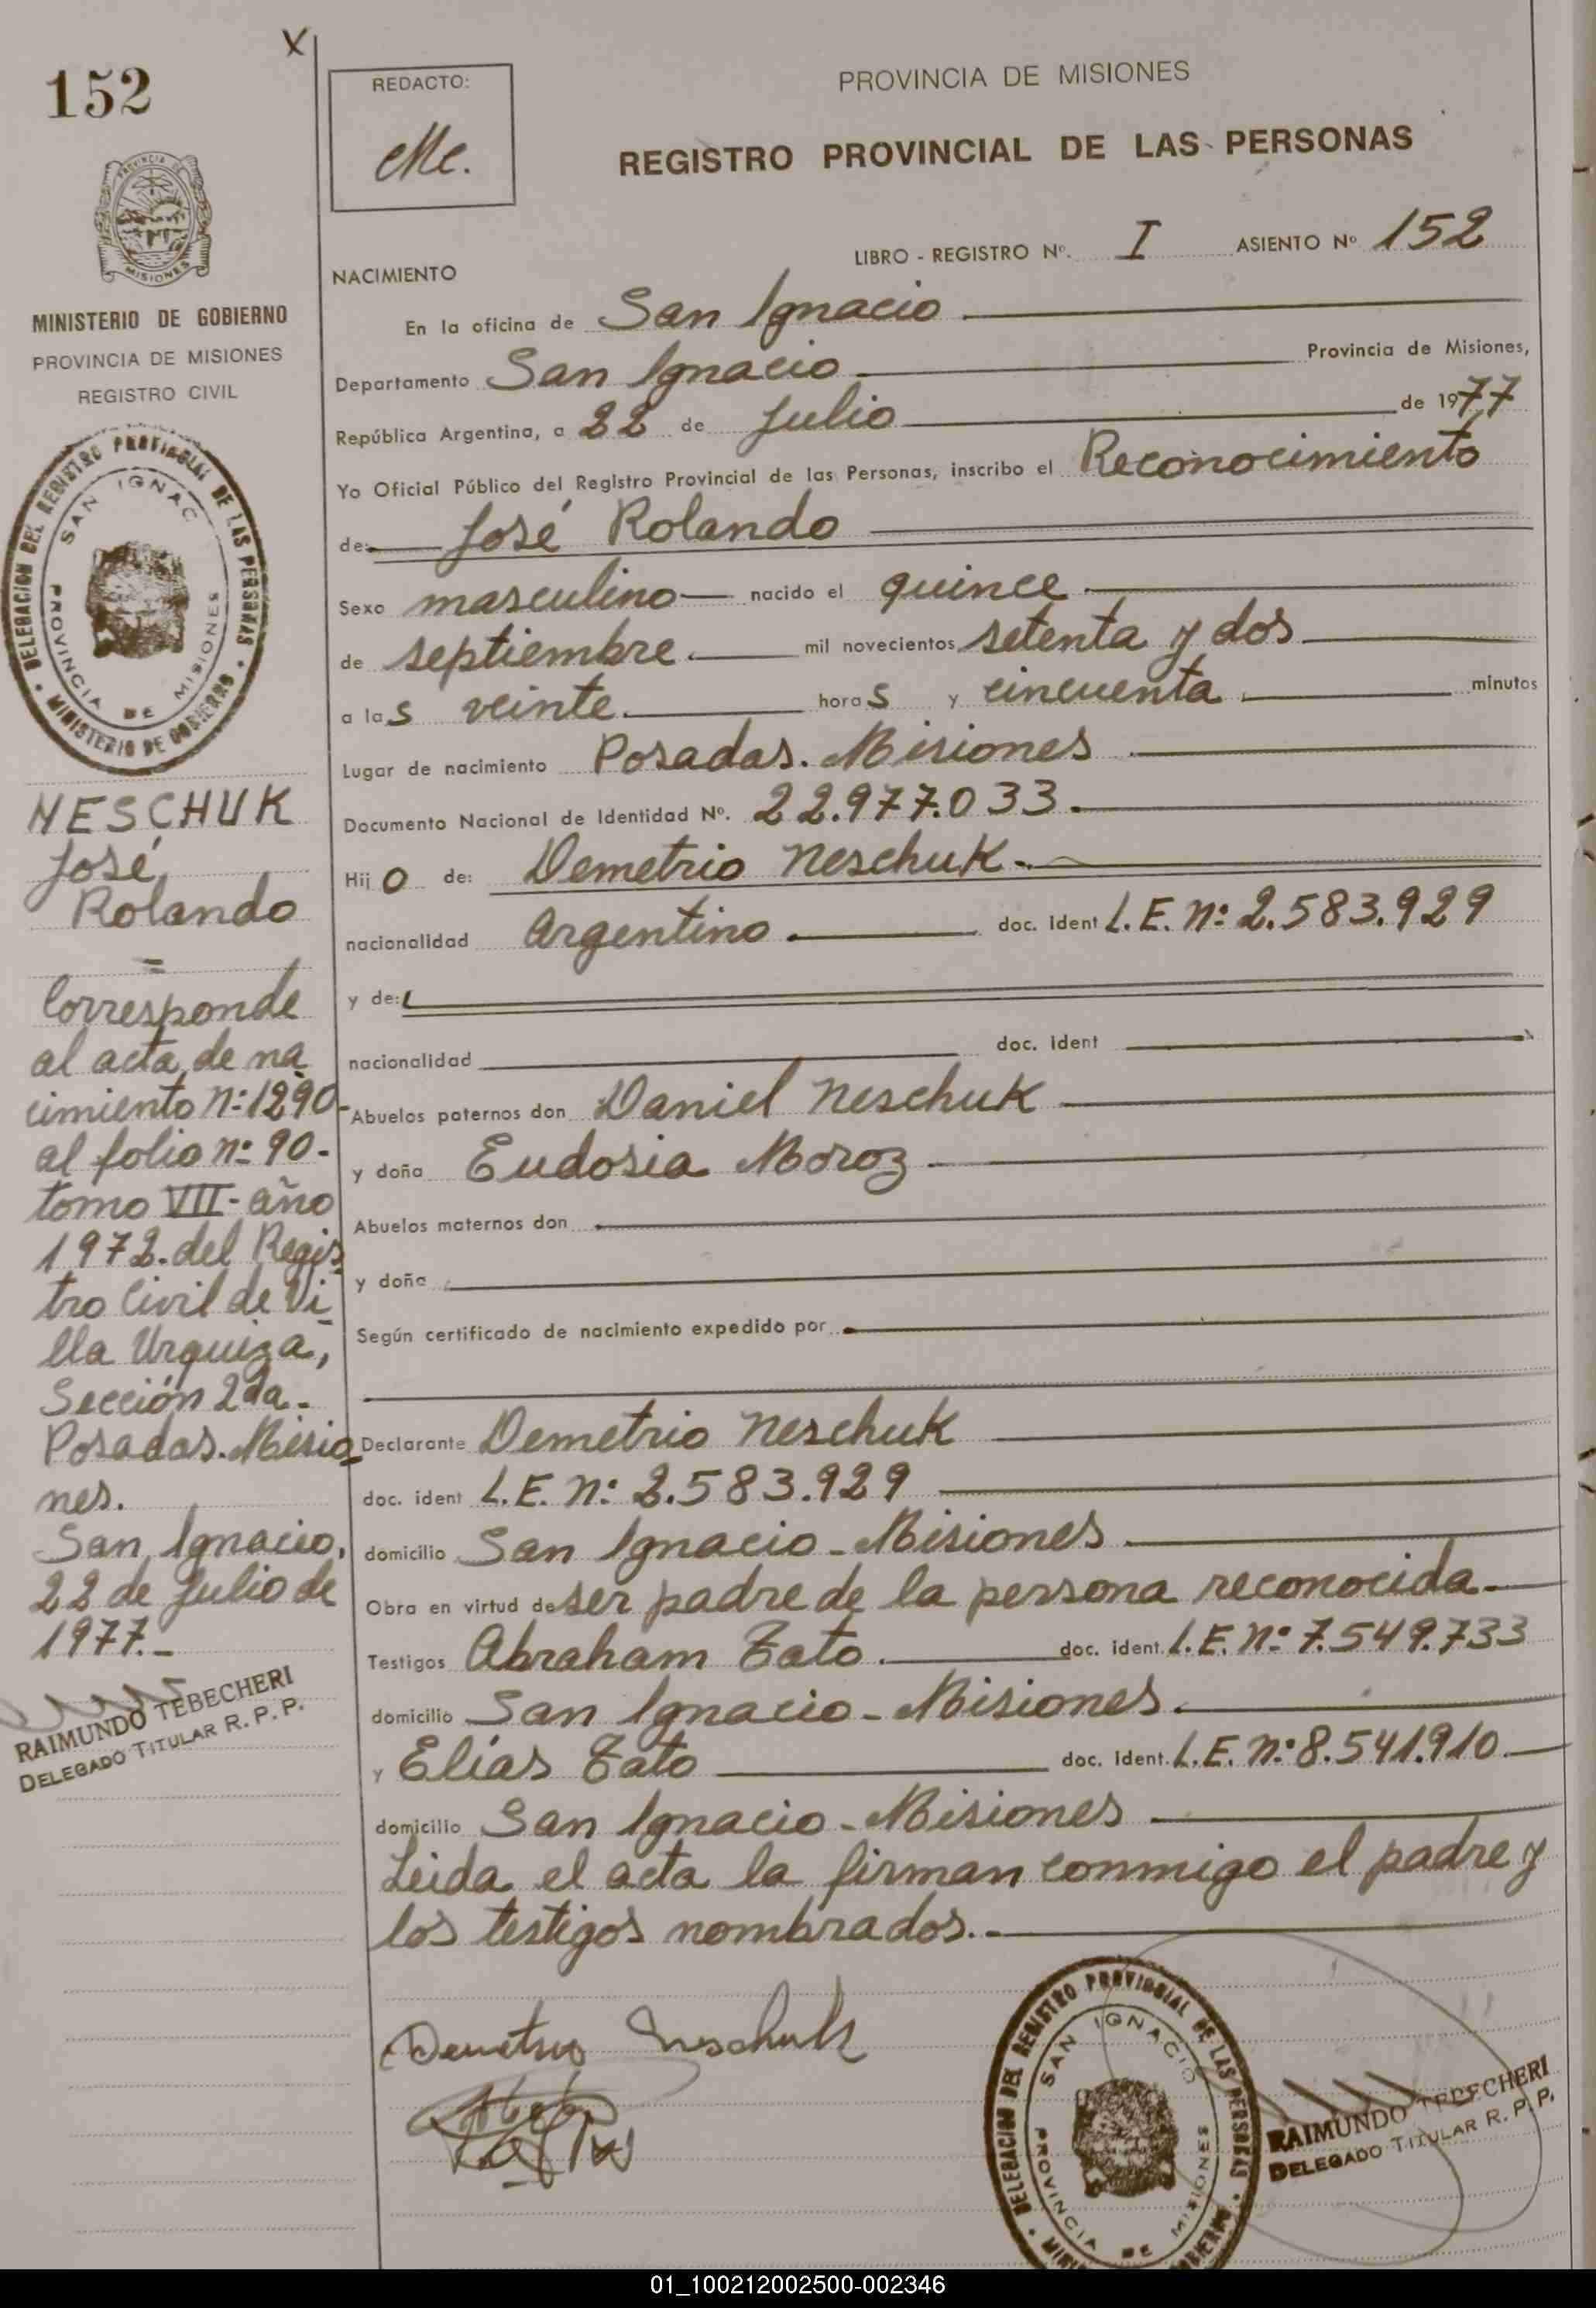 152
X
REDACTO:
Me.
PROVINCIA DE MISIONES
REGISTRO PROVINCIAL DE LAS PERSONAS
LIBRO - REGISTRO Nº. I ASIENTO Nº 152
NACIMIENTO
En la oficina de San Ignacio
Departamento San Ignacio Provincia de Misiones,
República Argentina, a 22 de Julio de 1977
Yo Oficial Público del Registro Provincial de las Personas, inscribo el Reconocimiento
de: José Rolando
Sexo masculino nacido el quince
de septiembre. mil novecientos setenta y dos
a las veinte. horas y cincuenta minutos
Lugar de nacimiento Posadas. Misiones
Documento Nacional de Identidad Nº. 22.977.033.
Hijo de: Demetrio Neschuk.
nacionalidad Argentino. doc. ident L.E. Nº: 2.583.929
y de:
nacionalidad doc. ident
Abuelos paternos don Daniel Neschuk
y doña Eudosia Moroz
Abuelos maternos don
y doña
Según certificado de nacimiento expedido por
Declarante Demetrio Neschuk
doc. ident L.E. Nº: 2.583.929
domicilio San Ignacio - Misiones
Obra en virtud de ser padre de la persona reconocida.
Testigos Abraham Tato. doc. ident. L.E. Nº: 7.549.733
domicilio San Ignacio - Misiones.
y Elías Tato doc. ident. L.E. Nº: 8.541.910
domicilio San Ignacio - Misiones
Leida el acta la firman conmigo el padre y
los testigos nombrados.-
Demetrio Neschuk
PROVINCIA DE
MISIONES
MINISTERIO DE GOBIERNO
PROVINCIA DE MISIONES
REGISTRO CIVIL
DELEGACION DEL REGISTRO PROVINCIAL DE LAS PERSONAS
SAN IGNAC
PROVINCIA DE MISIONES
MINISTERIO DE GOBIERNO
NESCHUK
José
Rolando
=
Corresponde
al acta de na
cimiento Nº: 1290-
al folio Nº 90-
tomo VII - año
1972. del Regis
tro Civil de Vi
lla Urquiza,
Sección 2da.
Posadas. Misio
nes.
San Ignacio,
22 de Julio de
1977.-
RAIMUNDO TEBECHERI
DELEGADO TITULAR R. P. P.
DELEGACION DEL REGISTRO PROVINCIAL DE LAS PERSONAS
SAN IGNACIO
PROVINCIA DE MISIONES
RAIMUNDO TEBECHERI
DELEGADO TITULAR R. P. P.
01_100212002500-002346